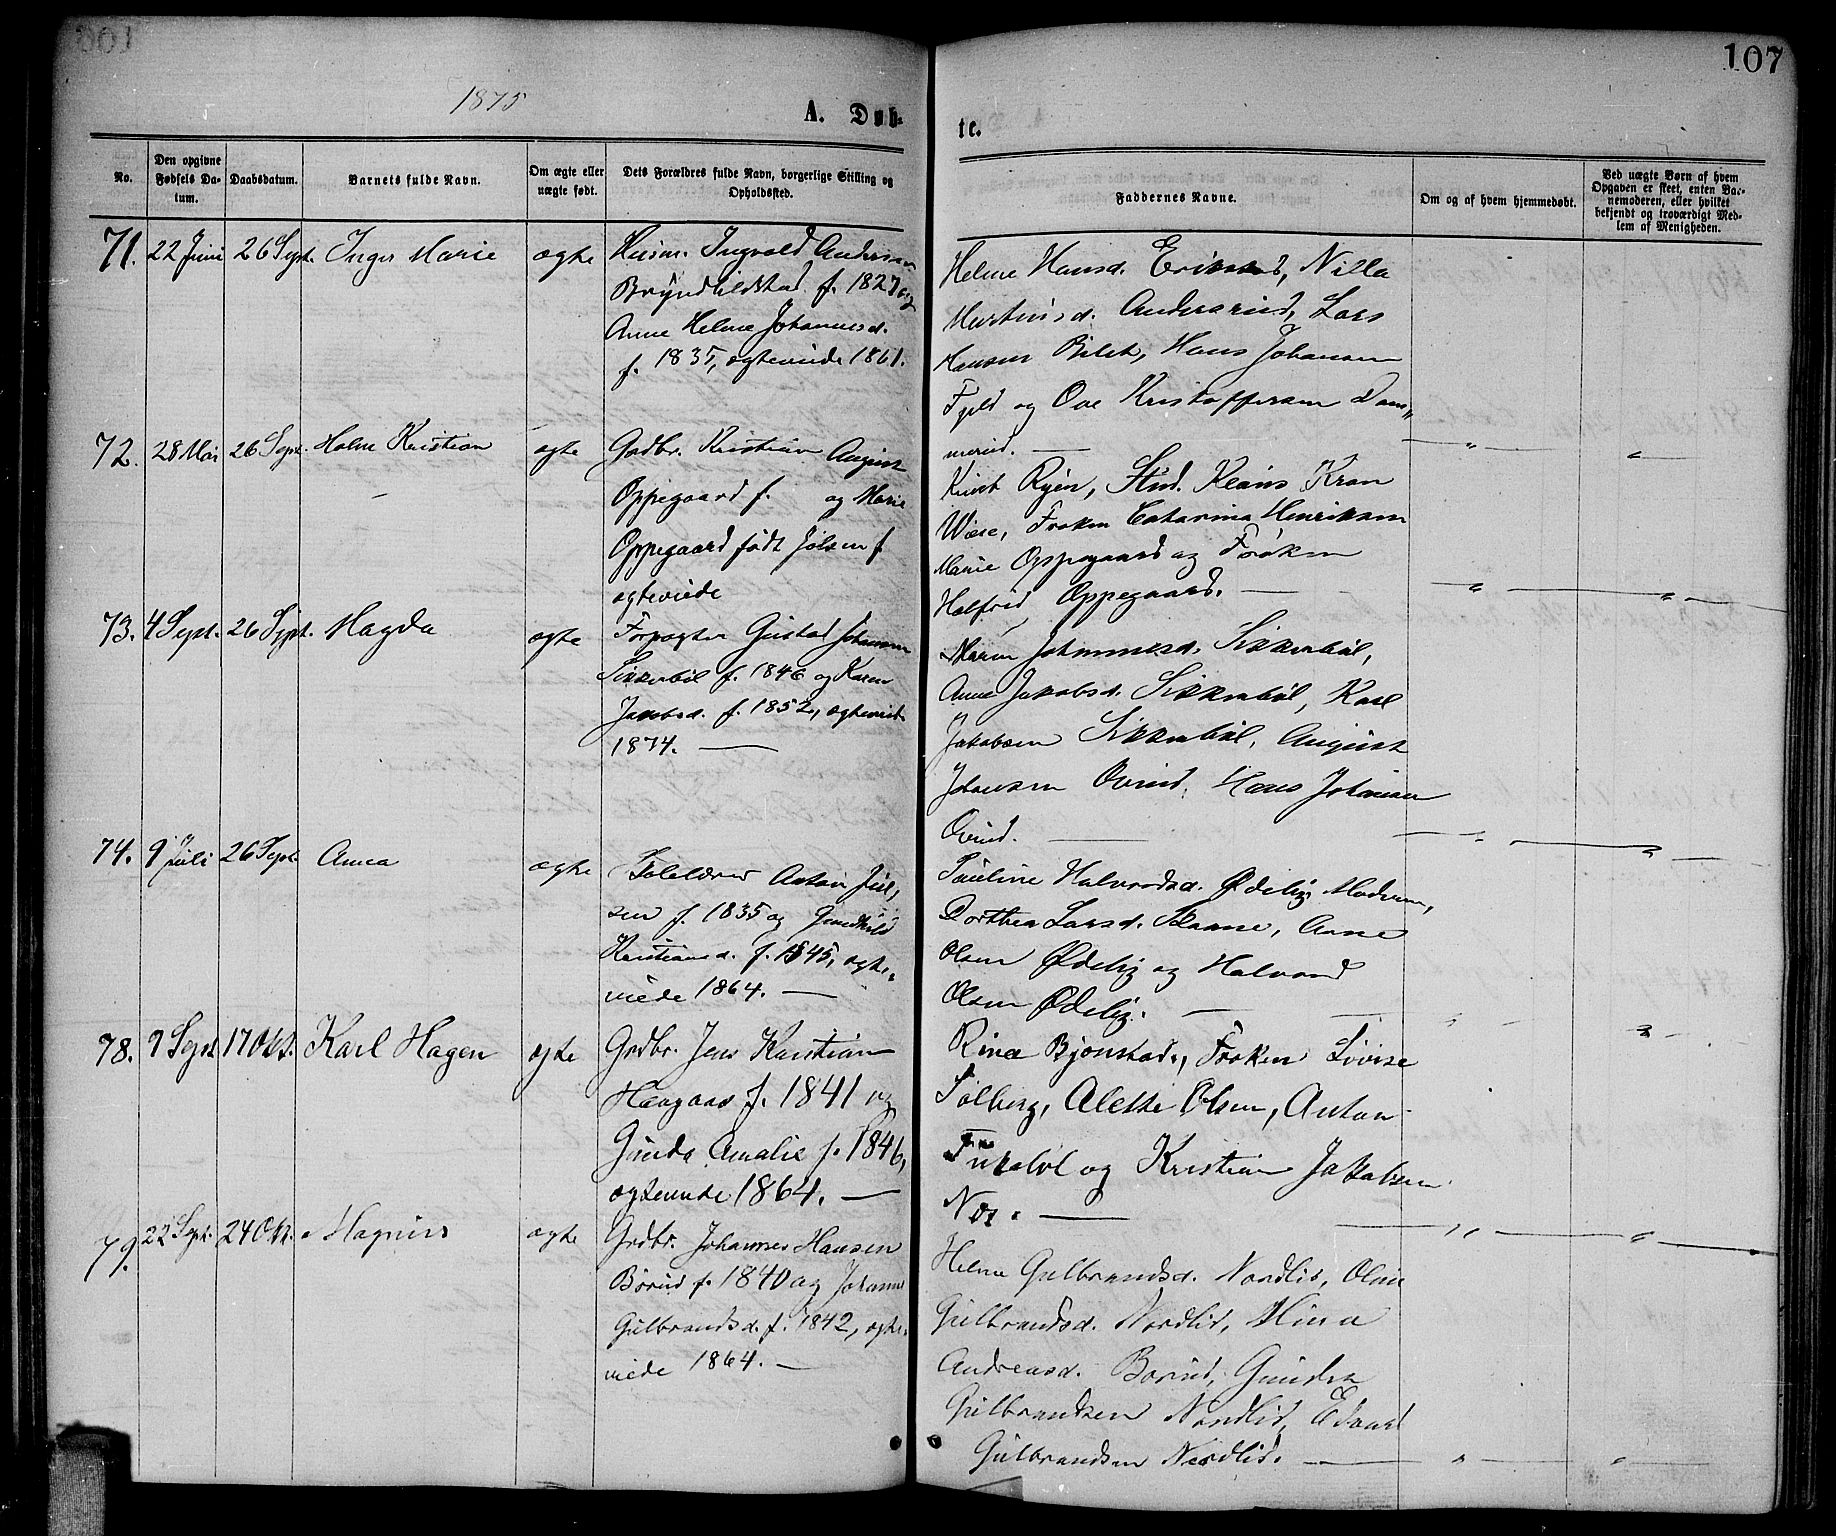 107
1875
A. Døb-
te.
No.
Den opgivne Fødsels Da-tum.
Daabsdatum.
Barnets fulde Navn.
Om ægte eller uægte født.
Dets Forældres fulde Navn, borgerlige Stilling og Opholdssted.
Faddernes Navne.
Om og af hvem hjemmedøbt.
Ved uægte Børn af hvem Opgaven er skeet, enten Bar-nemoderen, eller hvilket bekjendt og troværdigt Med-lem af Menigheden.
71. 22 Juni 26 Sept. Inger Marie ægte
Husm. Ingvald Andersen
Bryndhildstad f. 1827 og
Anne Helene Johannesd.
f. 1835, ægteviede 1861.
Helene Hansd. Nilla
Martinsd. Lars
Hansen Hans Johansen
Fjeld og Ove Kristoffersen Dam„
merud.
72. 28 Mai 26 Sept. Kristian ægte
Gaardbr. Kristian August
Oppegaard f. og Marie
Oppegaard født f
ægteviede
Knut Ryen, Stud.
Frøken Catarina Henriksen
Marie Oppegaard og Frøken
Halfrid Oppegaard.
73. 4 Sept. 26 Sept. Magda ægte
Forpagter Gustav Johansen
Sikkerbøl f. 1846 og Karen
Jacobsd. f. 1852, ægteviede
1874.
Maren Johannesd. Sikkerbøl,
Anne Jakobsd. Sikkerbøl, Karl
Jakobsen Sikkerbøl, August
Johansen Øvrud, Hans Johansen
Øvrud.
74. 9 Juli 26 Sept. Anna ægte
Anton Juel„
sen f. 1835 og Gundhild
Kristiansd. f. 1845, ægte„
viede 1864.
Pauline Halvorsd. Ødelig, Moderen,
Dorthea Larsd. Anne
Olsen Ødelig og Halvord
Olsen Ødelig.
78. 7 Sept. 17 Okt. Karl Hagen ægte
Grdbr. Jens Kristian
Haugaas f. 1841 og
Gunda Amalie f. 1846,
ægteviede 1864.
Rina Bjønstad, Frøken Lovise
Solberg, Alette Olsen, Anton
og Kristian Jakobsen
Næs.
79. 22 Sept. 24 Okt. Magnus ægte
Grdbr. Johannes Hansen
Børud f. 1840 og Johanne
Gulbrandsd. f. 1842, ægte„
viede 1864.
Helene Gulbrandsd. Nordlid, Oline
Gulbrandsd. Nordlid, Mina
Andreasd. Børud, Gunder
Gulbrandsen Nordlid, Edvard
Gulbrandsen Nordlid.